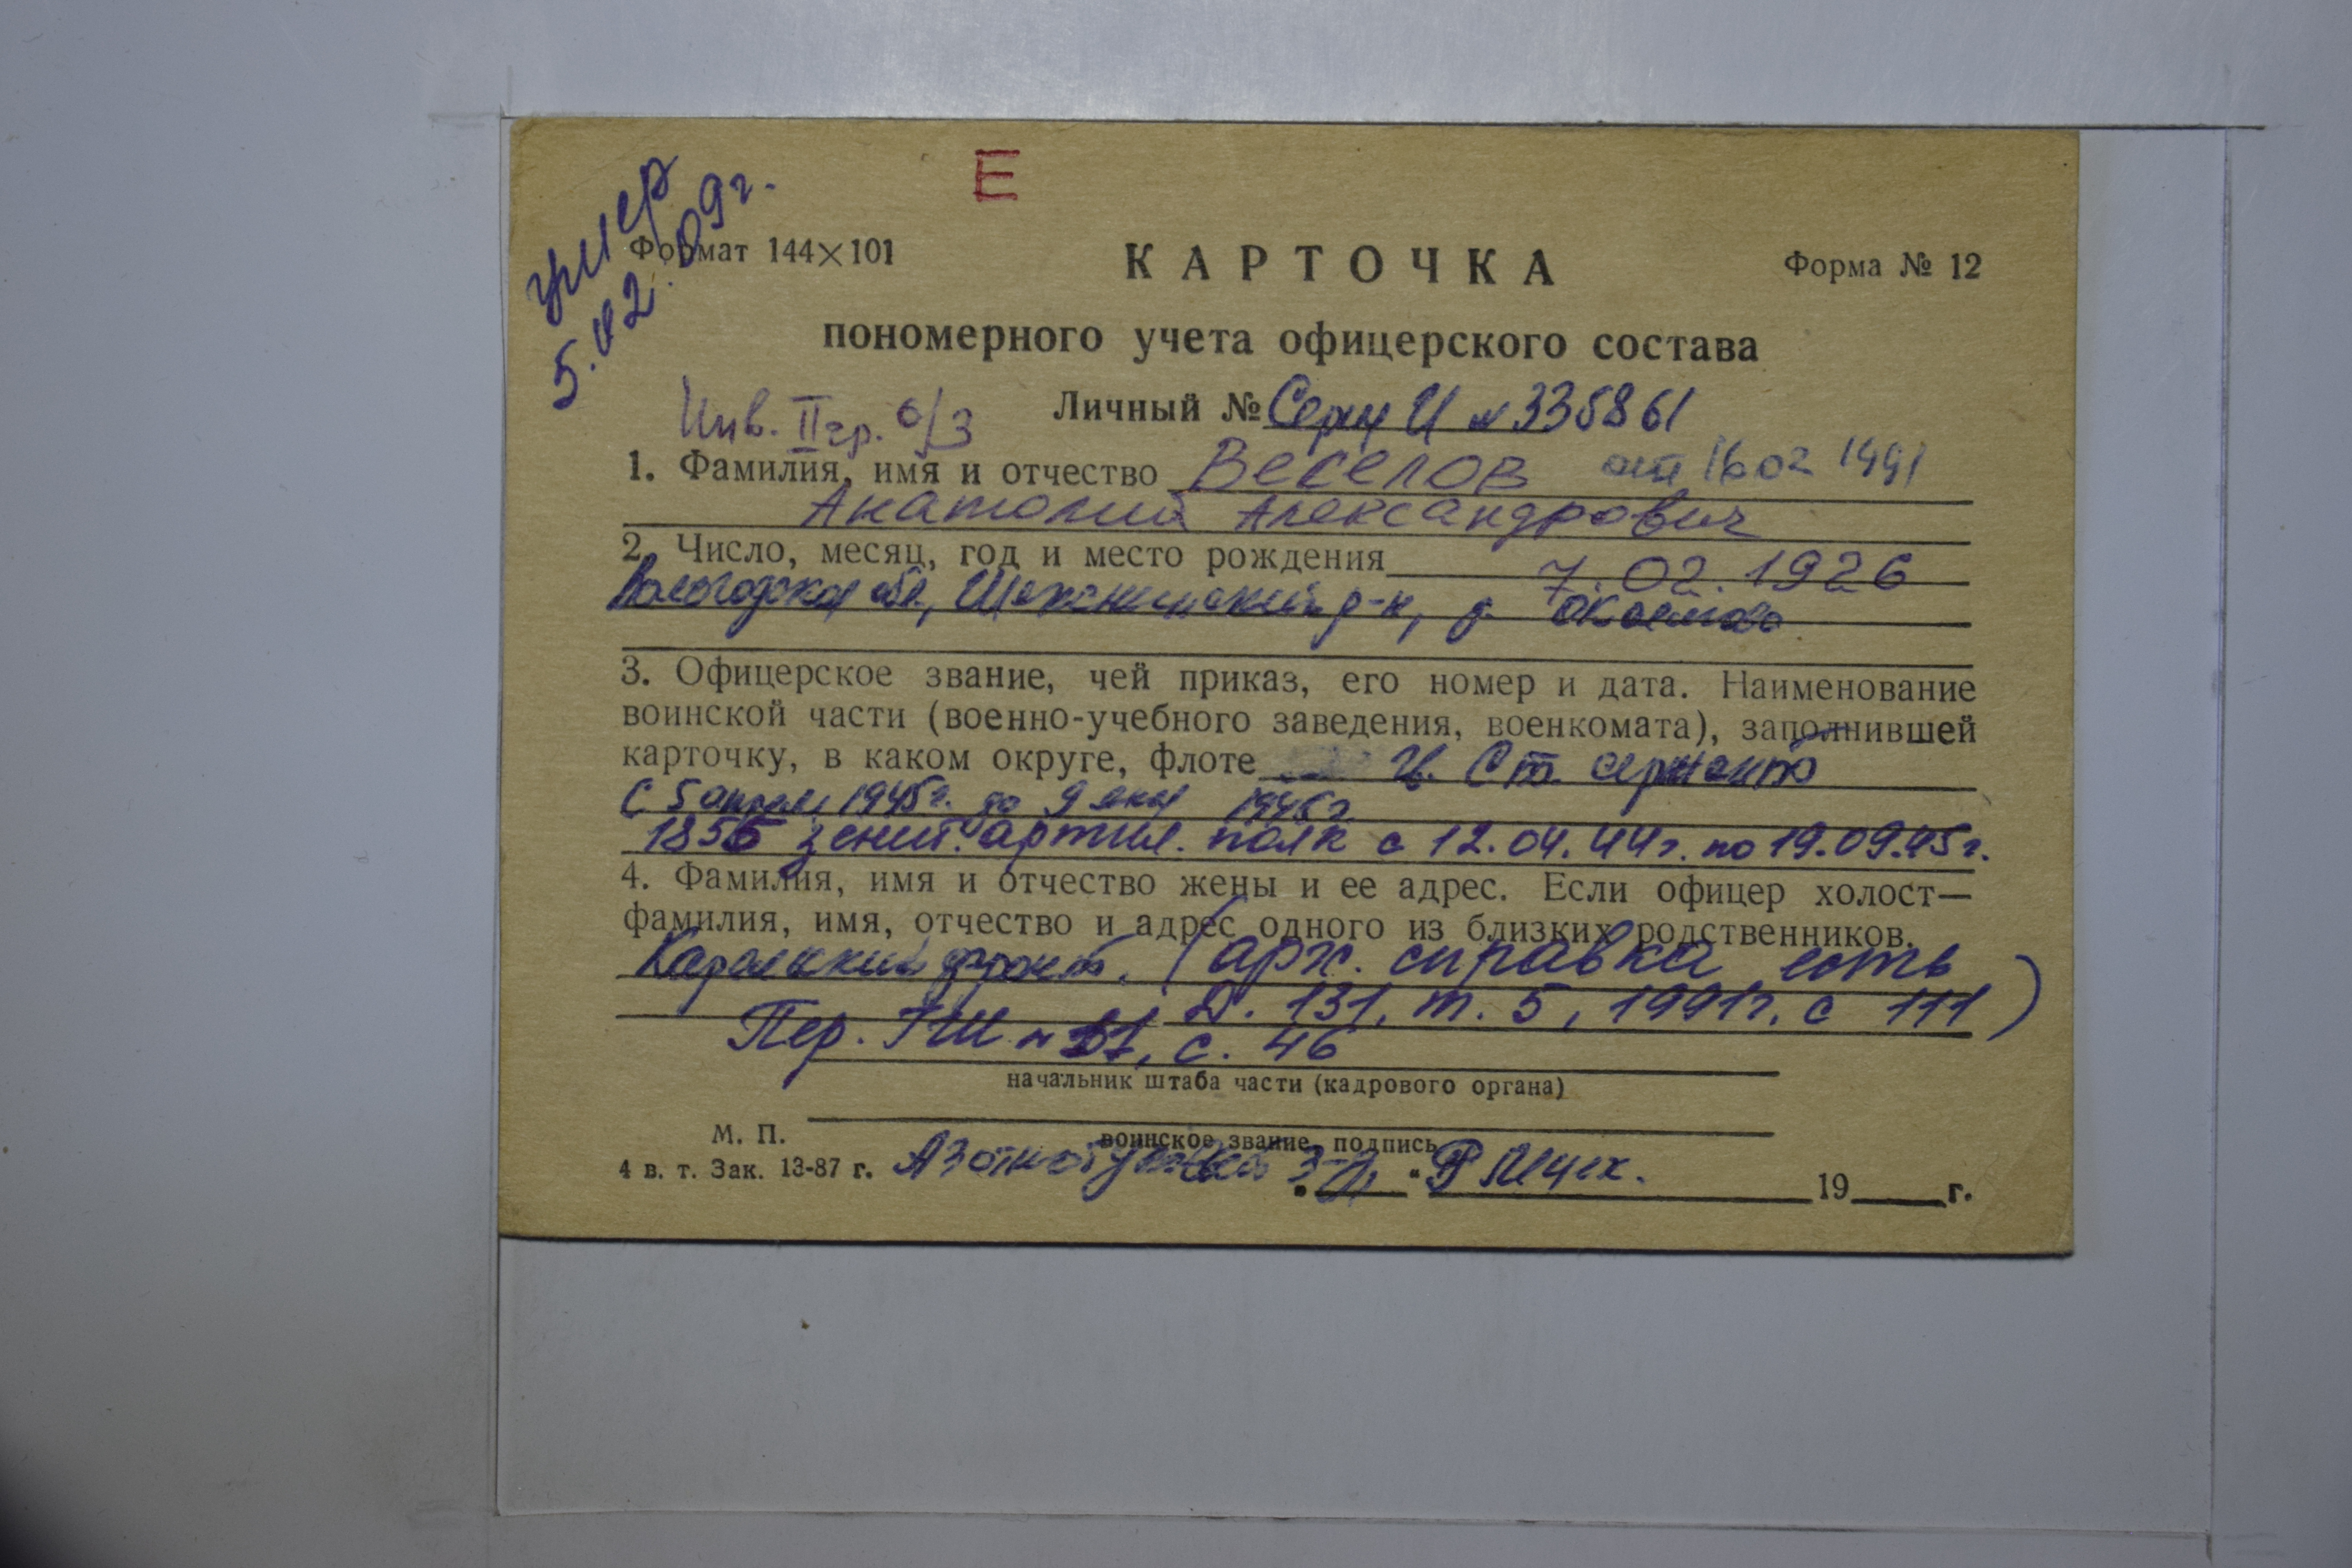 Е
умер
5.02.09г.
Формат 144×101
КАРТОЧКА
Форма № 12
пономерного учета офицерского состава
Инв. II гр. о/з
Личный № Серия И № 335861
1. Фамилия, имя и отчество Веселов от 16 02 1991
Анатолий Александрович
2. Число, месяц, год и место рождения 7.02.1926
Вологодская обл, Шекснинский р-н, д.
3. Офицерское звание, чей приказ, его номер и дата. Наименование
воинской части (военно-учебного заведения, военкомата), заполнившей
карточку, в каком округе, флоте Ст. сержант
С 5 апреля 1945г. до 9 мая 1945г
1856 зенит. артил. полк с 12.04.44г. по 19.09.45г.
4. Фамилия, имя и отчество жены и ее адрес. Если офицер холост—
фамилия, имя, отчество и адрес одного из близких родственников.
Карельский фронт. (арх. справка есть
Д. 131, т. 5, 1991г. с 111)
Пер. ГШ с. 46
начальник штаба части (кадрового органа)
М. П.
воинское звание, подпись
4 в. т. Зак. 13-87 г.
19 г.